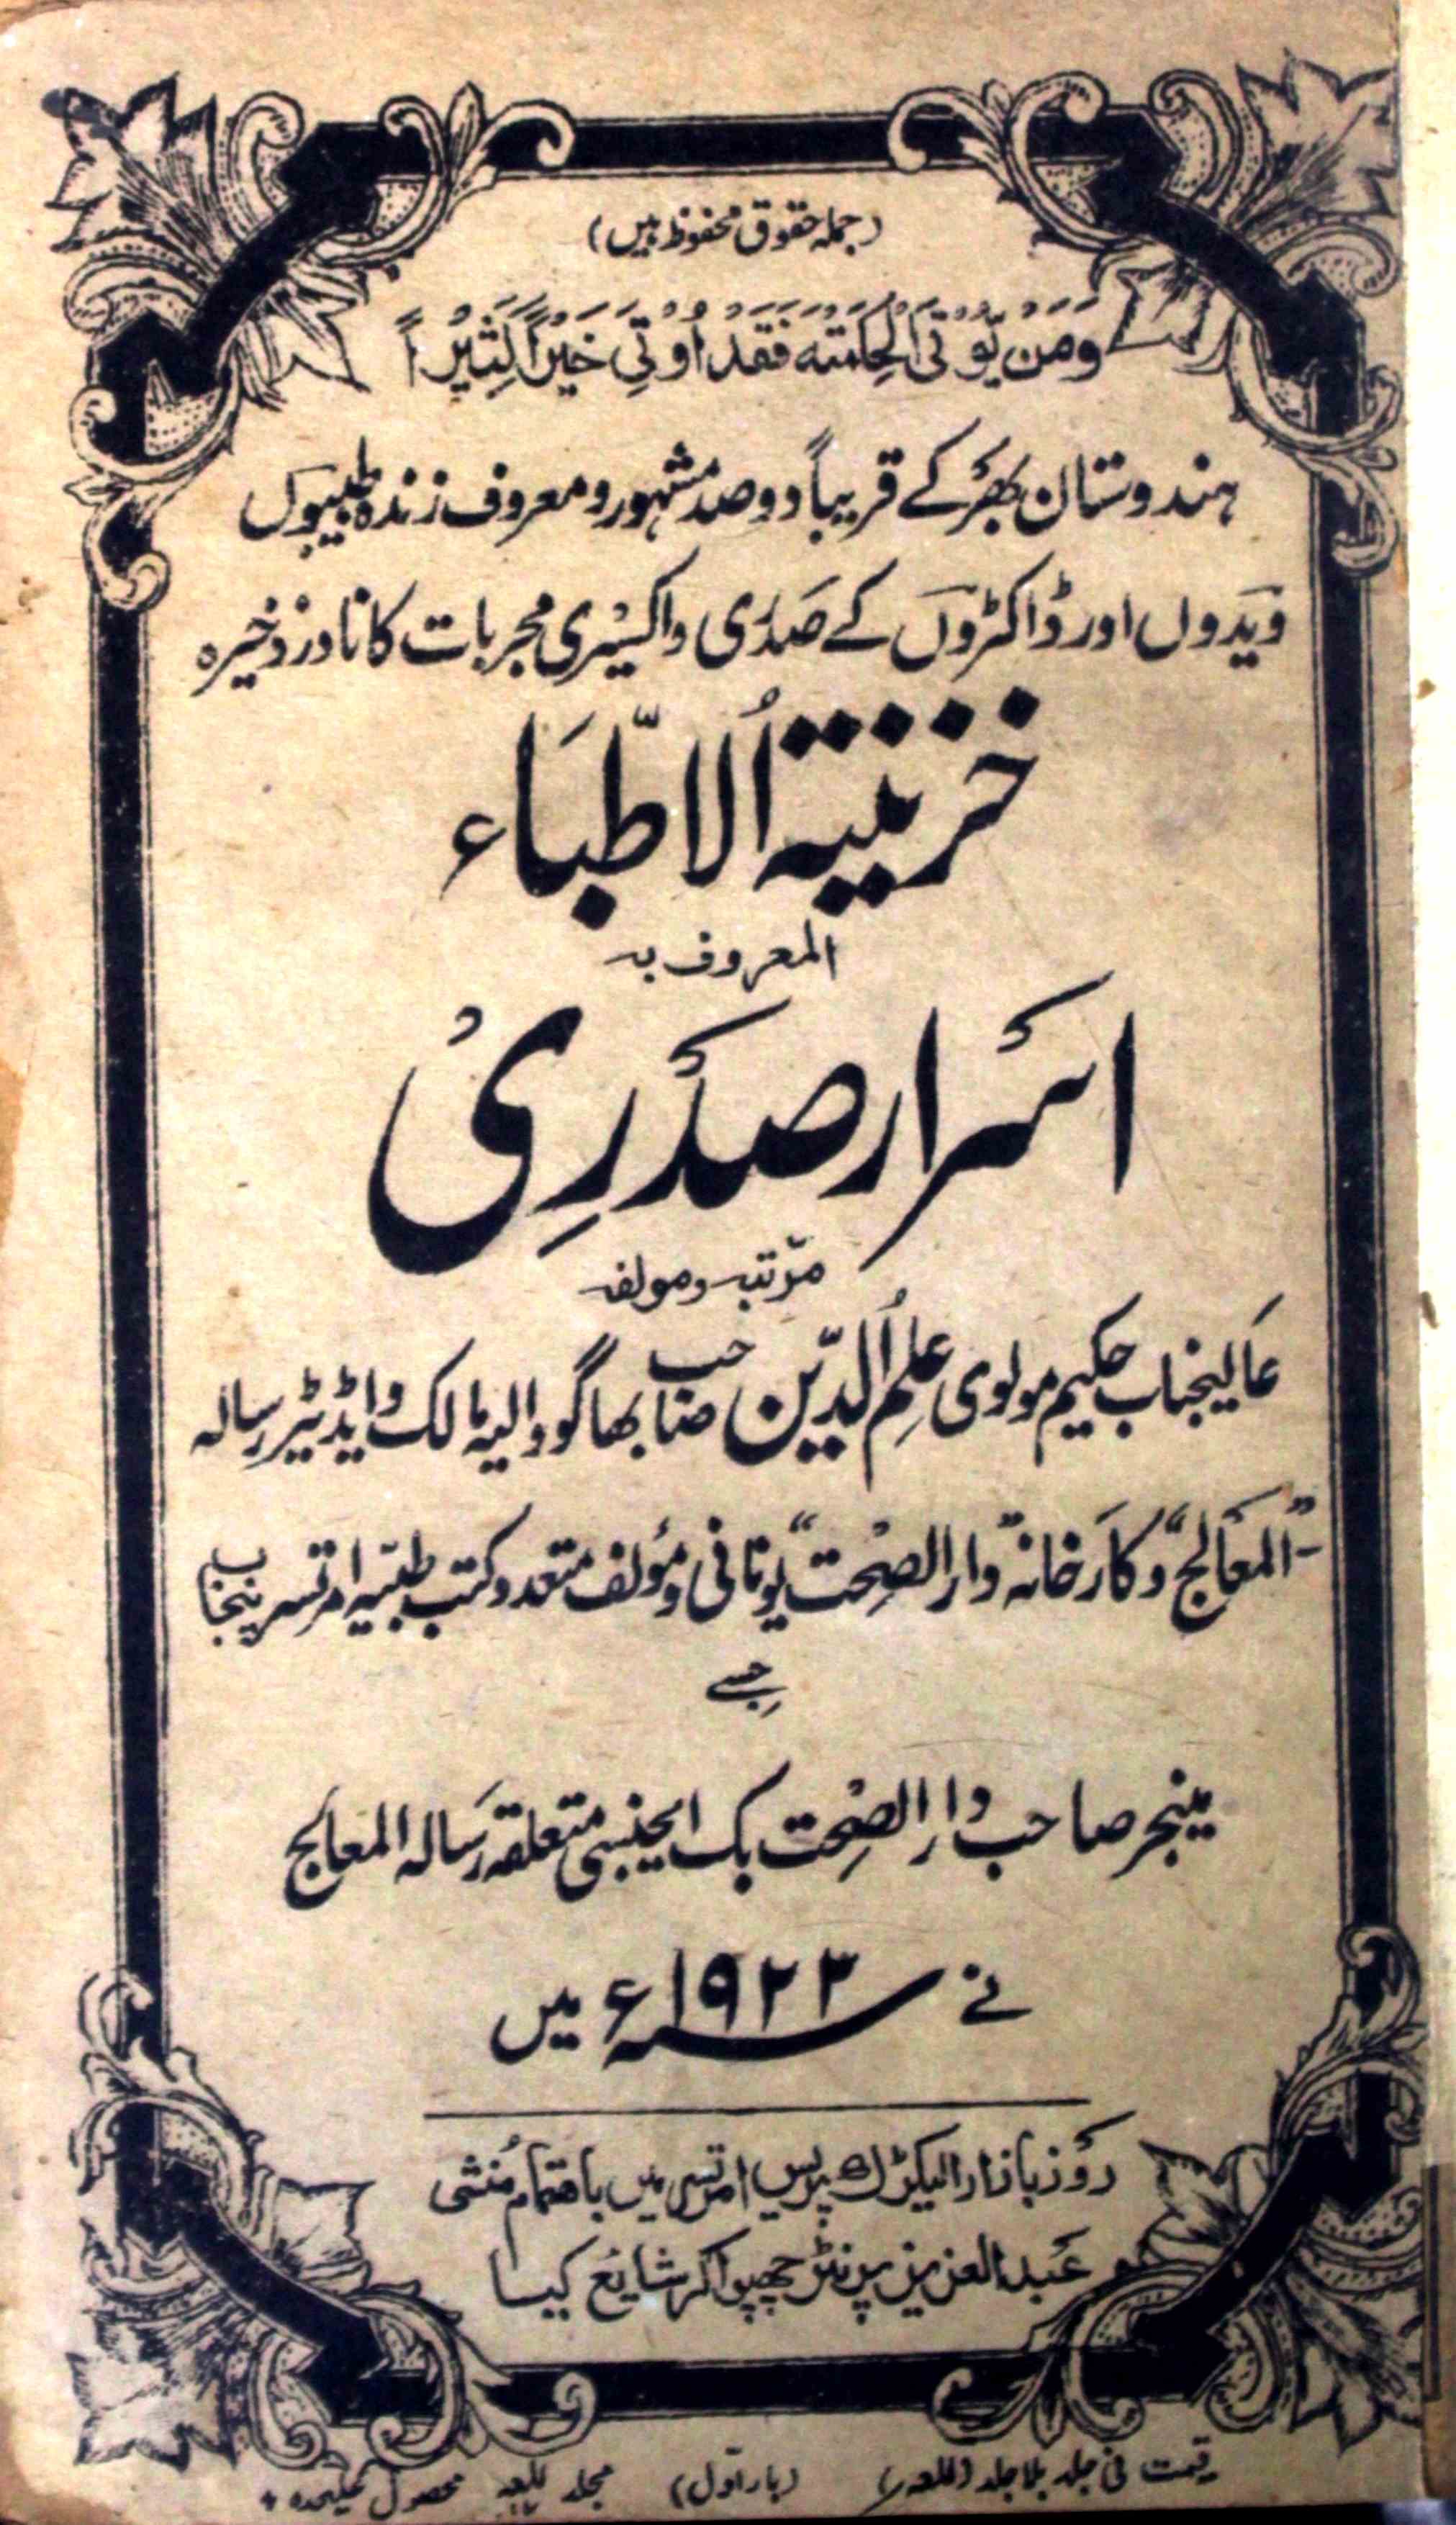 (جملہ حقوق محفوظ ہیں)
وَمَنْ يُّوْتَی الْحِکْمَتَہ فَقَدْ اُوْتِیَ خَیْرًا کَثِیْرًا
ہندوستان بھر کے قریباً دو صد مشہور و معروف زندہ طبیبوں
ویدوں اور ڈاکٹروں کے صدری و اکسیری مجربات کا نادر ذخیرہ
خزینۃ الاطّباء
المعروف بہ
اسرار صدری
مرتبہ و مولفہ
عالیجناب حکیم مولوی علم الدّین صاحب بھاگووالیہ مالک و ایڈیٹر رسالہ
"المعالج" و کارخانہ "دار الصحت" یونانی و مؤلف متعدد کتب طبیہ امرتسر پنجاب
جسے
مینجر صاحب دار الصحت بک ایجنسی متعلقہ رسالہ المعالج
نے ۱۹۲۳ء میں
روز بازار الیکٹرک پریس امرتسر میں باہتمام منشی
عبدالعزیز پرنٹر چھپوا کر شایع کیا
قیمت فی جلد بلا جلد (باراوّل) مجلد محصول علیحدہ